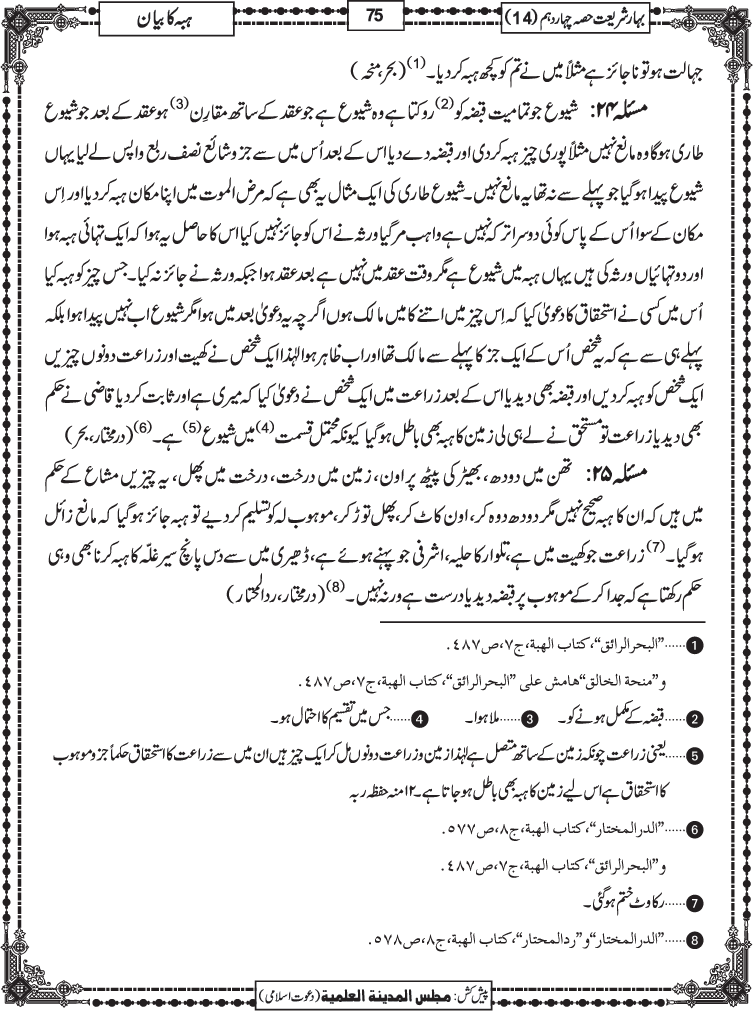 بہارِ شریعت حصہ چہاردہم (14)
75
ہبہ کا بیان
جہالت ہو تو نا جائز ہے مثلاً میں نے تم کو کچھ ہبہ کر دیا۔(1) (بحر، منحہ)
مسئلہ ۲۴: شیوع جو تمامیت قبضہ کو(2) روکتا ہے وہ شیوع ہے جو عقد کے ساتھ مقارِن(3) ہو عقد کے بعد جو شیوع
طاری ہوگا وہ مانع نہیں مثلاً پوری چیز ہبہ کر دی اور قبضہ دے دیا اس کے بعد اُس میں سے جزو شائع نصف ربع واپس لے لیا یہاں
شیوع پیدا ہوگیا جو پہلے سے نہ تھا یہ مانع نہیں۔ شیوع طاری کی ایک مثال یہ بھی ہے کہ مرض الموت میں اپنا مکان ہبہ کر دیا اور اِس
مکان کے سوا اُس کے پاس کوئی دوسرا ترکہ نہیں ہے واہب مر گیا ورثہ نے اس کو جائز نہیں کیا اس کا حاصل یہ ہوا کہ ایک تہائی ہبہ ہوا
اور دو تہائیاں ورثہ کی ہیں یہاں ہبہ میں شیوع ہے مگر وقت عقد میں نہیں ہے بعد عقد ہوا جبکہ ورثہ نے جائز نہ کیا۔ جس چیز کو ہبہ کیا
اُس میں کسی نے استحقاق کا دعویٰ کیا کہ اِس چیز میں اتنے کا میں مالک ہوں اگرچہ یہ دعویٰ بعد میں ہوا مگر شیوع اب نہیں پیدا ہوا بلکہ
پہلے ہی سے ہے کہ یہ شخص اُس کے ایک جز کا پہلے سے مالک تھا اور اب ظاہر ہوا لہٰذا ایک شخص نے کھیت اور زراعت دونوں چیزیں
ایک شخص کو ہبہ کر دیں اور قبضہ بھی دیدیا اس کے بعد زراعت میں ایک شخص نے دعویٰ کیا کہ میری ہے اور ثابت کر دیا قاضی نے حکم
بھی دیدیا زراعت تو مستحق نے لے ہی لی زمین کا ہبہ بھی باطل ہوگیا کیونکہ محتملِ قسمت(4) میں شیوع(5) ہے۔(6) (درمختار، بحر)
مسئلہ ۲۵: تھن میں دودھ، بھیڑ کی پیٹھ پر اون، زمین میں درخت، درخت میں پھل، یہ چیزیں مشاع کے حکم
میں ہیں کہ ان کا ہبہ صحیح نہیں مگر دودھ دوہ کر، اون کاٹ کر، پھل توڑ کر، موہوب لہ کو تسلیم کر دیے تو ہبہ جائز ہوگیا کہ مانع زائل
ہوگیا۔(7) زراعت جو کھیت میں ہے، تلوار کا حلیہ، اشرفی جو پہنے ہوئے ہے، ڈھیری میں سے دس پانچ سیر غلّہ کا ہبہ کرنا بھی وہی
حکم رکھتا ہے کہ جدا کر کے موہوب پر قبضہ دیدیا درست ہے ورنہ نہیں۔(8) (درمختار، ردالمحتار)
1......"البحرالرائق"، کتاب الهبة، ج٧، ص٤٨٧.
و"منحة الخالق" هامش علی "البحرالرائق"، کتاب الهبة، ج٧، ص٤٨٧.
2......قبضہ کے مکمل ہونے کو۔ 3......ملا ہوا۔ 4......جس میں تقسیم کا احتمال ہو۔
5......یعنی زراعت چونکہ زمین کے ساتھ متصل ہے لہٰذا زمین و زراعت دونوں مل کر ایک چیز ہیں ان میں سے زراعت کا استحقاق حکماً جزو موہوب
کا استحقاق ہے اس لیے زمین کا ہبہ بھی باطل ہو جاتا ہے۔ ۱۲ منہ حفظہ ربہ
6......"الدرالمختار"، کتاب الهبة، ج٨، ص٥٧٧.
و"البحرالرائق"، کتاب الهبة، ج٧، ص٤٨٧.
7......رکاوٹ ختم ہوگئی۔
8......"الدرالمختار" و"ردالمحتار"، کتاب الهبة، ج٨، ص٥٧٨.
پیش کش: مجلس المدینة العلمیة (دعوت اسلامی)